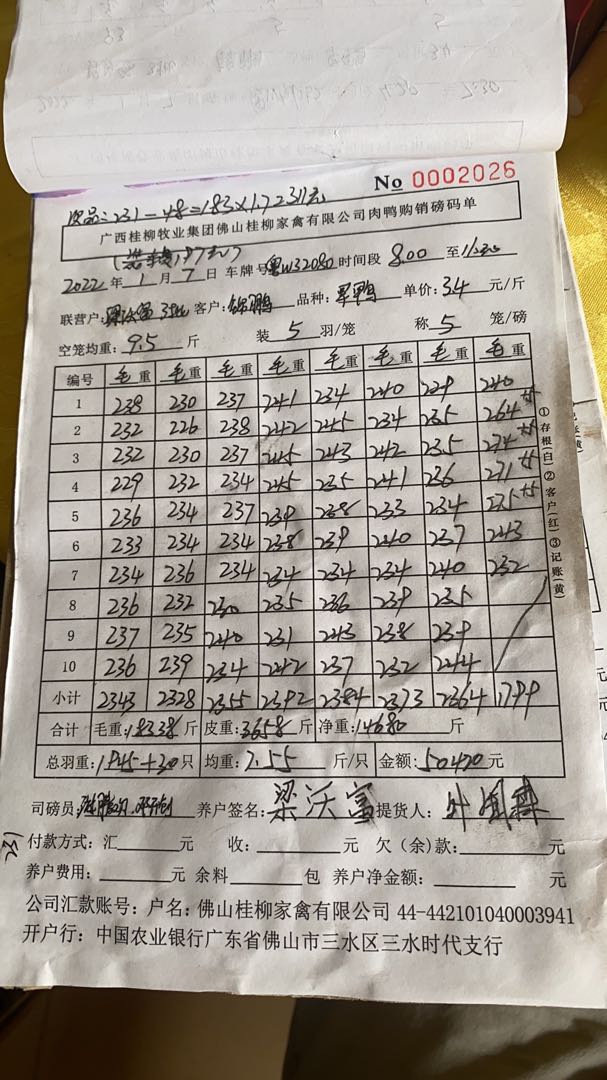 No 0002026
次品:231-48=183×1.7=311元
广西桂柳牧业集团佛山桂柳家禽有限公司肉鸭购销磅码单
2022年1月7日 车牌号粤W32080 时间段 8:00 至
联营户: 客户:锦鹏 品种:军鸭 单价:3.4 元/斤
空笼均重:9.5 斤 装 5 羽/笼 称 5 笼/磅
编号 毛重 毛重 毛重 毛重 毛重 毛重 毛重 毛重
1 238 230 237 241 234 240 229 240
2 232 226 238 242 245 234 235 264
3 232 230 237 245 243 242 235 274
4 229 232 234 245 235 241 236 271
5 236 234 237 239 238 233 234 275
6 233 234 234 238 239 240 237 243
7 234 236 234 234 234 234 240 232
8 236 232 230 235 236 239 235
9 237 235 240 231 243 238 239
10 236 239 234 242 237 232 244
小计 2343 2328 2355 2392 2384 2373 2364 1799
合计 毛重:18338 斤 皮重:3658 斤 净重:14680 斤
总羽重:1945+30 只 均重:7.55 斤/只 金额:50470 元
司磅员: 养户签名:梁沃富 提货人:
付款方式:汇 元 收: 元 欠(余)款: 元
养户费用: 元 余料 包 养户净金额: 元
公司汇款账号:户名:佛山桂柳家禽有限公司 44-442101040003941
开户行:中国农业银行广东省佛山市三水区三水时代支行
①存根(白)②客户(红)③记账(黄)
231